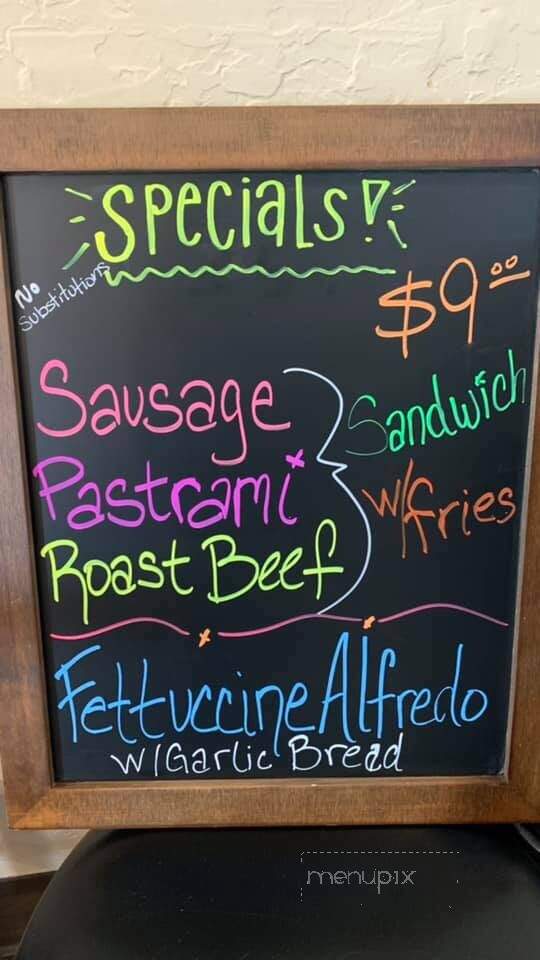 Specials!
No
Substitutions
$9.00
Sausage
Pastrami
Roast Beef
Sandwich
w/fries
Fettuccine Alfredo
w/Garlic Bread
menupix